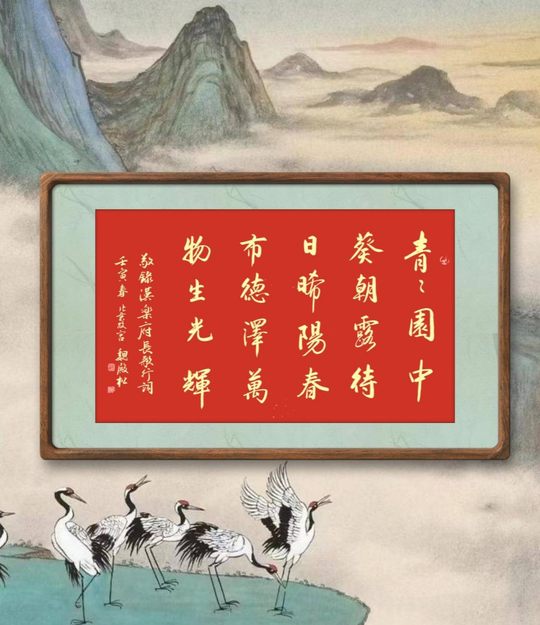 青〻園中
葵朝露待
日晞陽春
布德澤萬
物生光輝
敬錄漢樂府長歌行詞
壬寅春